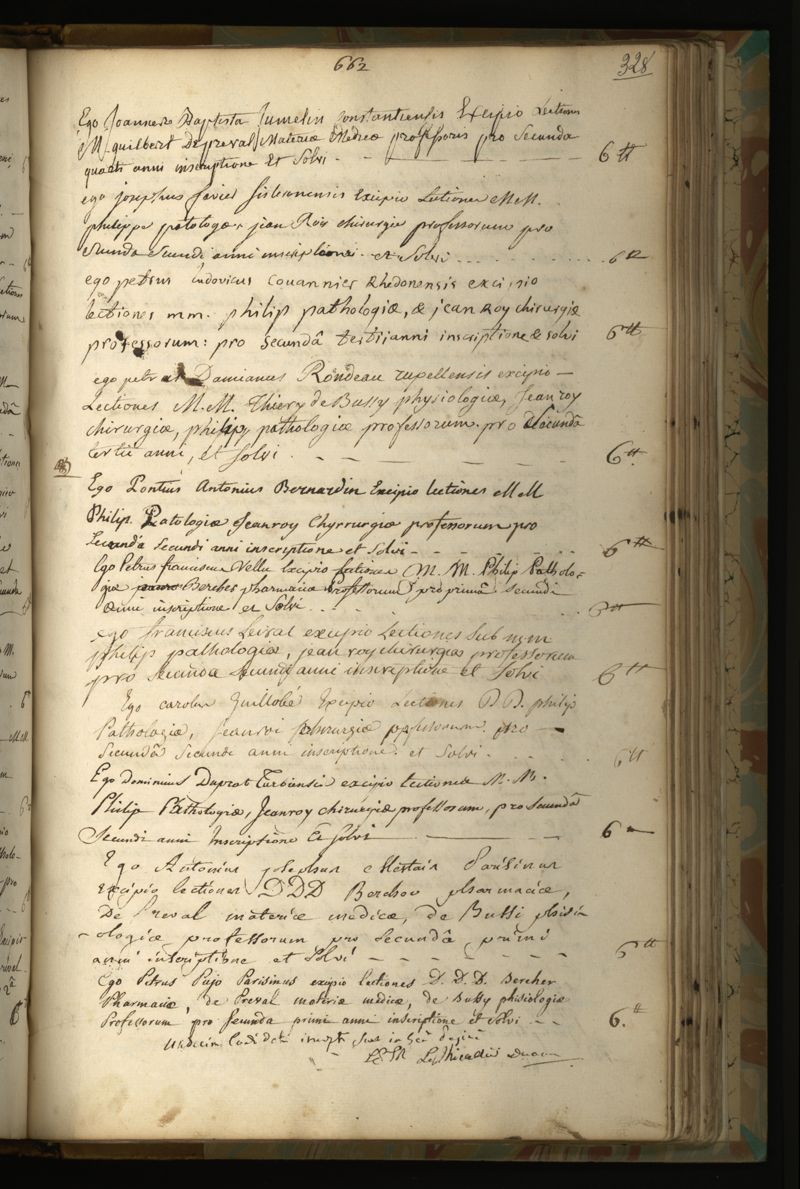 662
328
Ego Joannes Baptista Jumelin Constantiensis Excipio Lectiones
M. guilbert De preval Materiæ Medicæ professoris pro Secunda
quarti anni inscriptione Et Solvi - 6tt
ego Josephus favier sisteronensis Excipio Lectiones M M.
philippe patologæ, jean Roy chirurgiæ professorum pro
secunda secundi anni inscriptione et Solvi 6tt
ego petrus ludovicus Couannier Rhedonensis excipio
lectiones mm. philip pathologiæ, & jean roy chirurgiæ
professorum: pro secundâ tertii anni inscriptione & solvi 6tt
ego petrus Damianus Rondeau rupellensis excipio -
Lectiones M.M. Thiery de Bussy physiologiæ, Jean roy
chirurgiæ, philip, pathologiæ professorum. pro Secundâ
tertii anni, et solvi. 6tt
Ego Pontius Antonius Bernardin Excipio lectiones M M
Philip Patologiæ Jeanroy Chyrrurgiæ professorum pro
Secunda Secundi anni inscriptione et Solvi 6tt
Ego Petrus franciscus Excipio lectiones M. M. Philip Patholo=
giæ Bercher pharmaciæ Professorum pro primâ Secundi
anni inscriptione et Solvi 6tt
Ego franciscus excipio Lectiones
philip pathologiæ, jean roy chirurgiæ professorum
pro Secunda Secundi anni inscriptione et Solvi 6tt
Ego carolus Guillobé Excipio Lectiones D D. philip
Pathologiæ, Jeanroi chirurgiæ professorum pro -
Secundâ Secundi anni inscriptione. et Solvi. 6tt
Ego Dominicus Duprat excipio lectiones M. M.
Philip Pathologiæ, Jeanroy chirurgiæ professorum, pro Secundâ
Secundi anni Inscriptione Et Solvi 6
Ego Antonius josephus Parisinus
Excipio lectiones DDD Bercher pharmaciæ,
De Preval materiæ medicæ, de Bussi phisi
ologiæ professorum pro secundâ primi
anni inscriptione et Solvi 6tt
Ego Petrus Pujo Parisinus excipio lectiones D. D. D. Bercher
Pharmaciæ, de Preval materiæ medicæ, de Bussy phisiologiæ
Professorum pro secunda primi anni inscriptione et solvi 6.tt